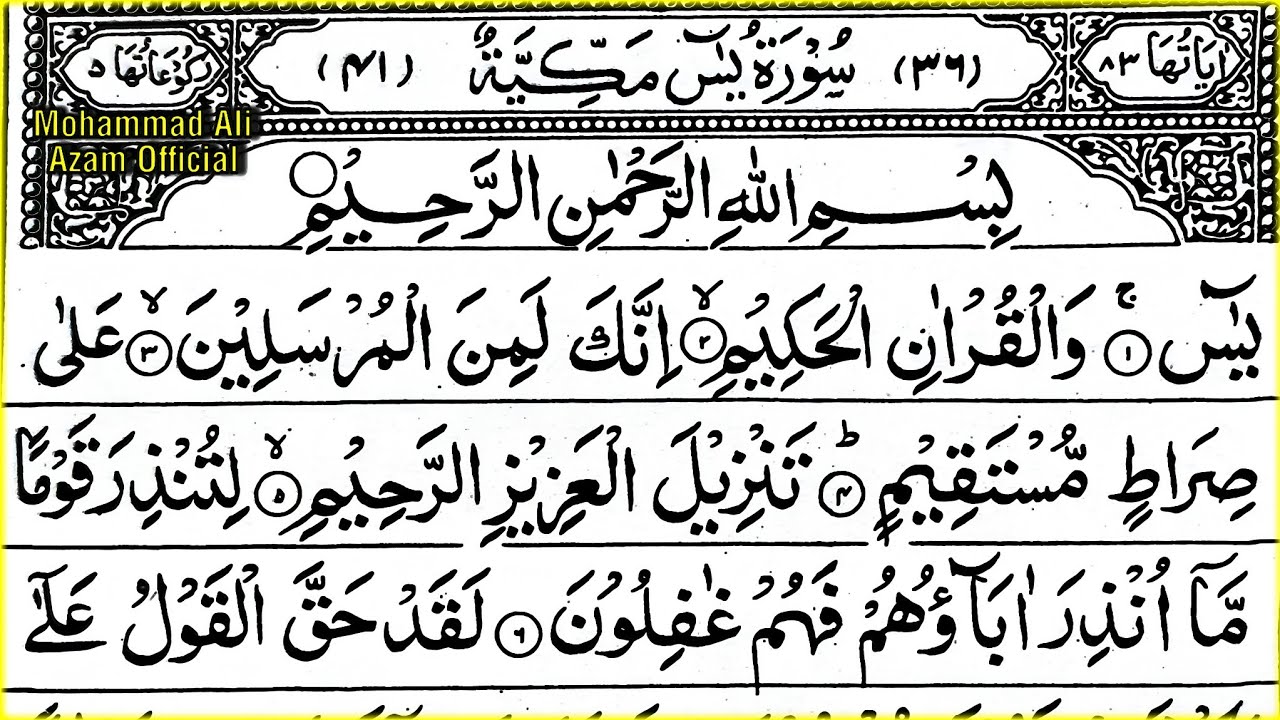 اٰيَاتُهَا ٨٣
(٣٦) سُوْرَةُ يٰسٓ مَكِّيَّةٌ (٤١)
رُكُوْعَاتُهَا ٥
Mohammad Ali
Azam Official
بِسْمِ اللهِ الرَّحْمٰنِ الرَّحِيْمِ ○
يٰسٓ ۚ ﴿١﴾ وَالْقُرْاٰنِ الْحَكِيْمِ ۙ ﴿٢﴾ اِنَّكَ لَمِنَ الْمُرْسَلِيْنَ ۙ ﴿٣﴾ عَلٰى
صِرَاطٍ مُّسْتَقِيْمٍ ؕ ﴿۴﴾ تَنْزِيْلَ الْعَزِيْزِ الرَّحِيْمِ ۙ ﴿۵﴾ لِتُنْذِرَ قَوْمًا
مَّآ اُنْذِرَ اٰبَآؤُهُمْ فَهُمْ غٰفِلُوْنَ ﴿۶﴾ لَقَدْ حَقَّ الْقَوْلُ عَلٰٓى